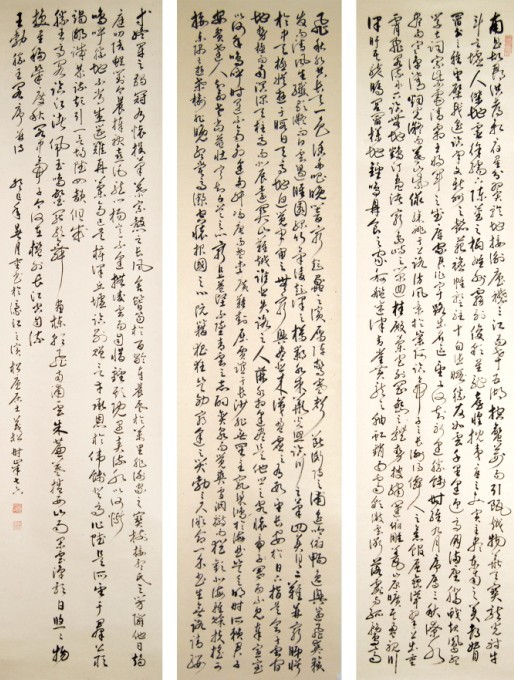 南昌故郡洪府新府星分翼軫地接衡廬襟三江而帶五湖控蠻荊而引甌越物華天寶龍光射牛
斗之墟人傑地靈徐孺下陳蕃之榻雄州霧列俊采星馳臺隍枕夷夏之交賓主盡東南之美都督
閻公之雅望棨戟遙臨宇文新州之懿範襜帷暫駐十旬休暇勝友如雲千里逢迎高朋滿座騰蛟起鳳孟
學士之詞宗紫電青霜王將軍之武庫家君作宰路出名區童子何知躬逢勝餞時維九月序屬三秋潦水
盡而寒潭清煙光凝而暮山紫儼驂騑於上路訪風景於崇阿臨帝子之長洲得仙人之舊館層巒聳翠上出重
霄飛閣流丹下臨無地鶴汀鳧渚窮島嶼之縈迴桂殿蘭宮列岡巒之體勢披繡闥俯雕甍山原曠其盈視川
澤盱其駭矚閭閻撲地鐘鳴鼎食之家舸艦迷津青雀黃龍之舳虹銷雨霽彩徹雲衢落霞與孤鶩齊
飛秋水共長天一色漁舟唱晚響窮彭蠡之濱雁陣驚寒聲斷衡陽之浦遙吟俯暢逸興遄飛爽籟
發而清風生纖歌凝而白雲遏睢園綠竹氣凌彭澤之樽鄴水朱華光照臨川之筆四美具二難並窮睇眄
於中天極娛遊於暇日天高地迥覺宇宙之無窮興盡悲來識盈虛之有數望長安於日下指吳會於雲間
地勢極而南溟深天柱高而北辰遠關山難越誰悲失路之人萍水相逢盡是他鄉之客懷帝閽而不見奉宣室
以何年嗚呼時運不齊命途多舛馮唐易老李廣難封屈賈誼於長沙非無聖主竄梁鴻於海曲豈乏明時所賴君子
安貧達人知命老當益壯寧移白首之心窮且益堅不墜青雲之志酌貪泉而覺爽處涸轍以猶歡北海雖賒扶搖可
接東隅已逝桑榆非晚孟嘗高潔空懷報國之心阮籍猖狂豈效窮途之哭勃三尺微命一介書生無路請纓
等終軍之弱冠有懷投筆慕宗愨之長風舍簪笏於百齡奉晨昏於萬里非謝家之寶樹接孟氏之芳鄰他日趨
庭叨陪鯉對今晨捧袂喜託龍門楊意不逢撫凌雲而自惜鍾期既遇奏流水以何慚
嗚呼勝地不常盛筵難再蘭亭已矣梓澤丘墟臨別贈言幸承恩於偉餞登高作賦是所望於群公敢
竭鄙誠恭疏短引一言均賦四韻俱成
滕王高閣臨江渚佩玉鳴鸞罷歌舞 畫棟朝飛南浦雲朱簾暮捲西山雨閒雲潭影日悠悠物
換星移幾度秋閣中帝子今何在檻外長江空自流
王勃滕王閣序